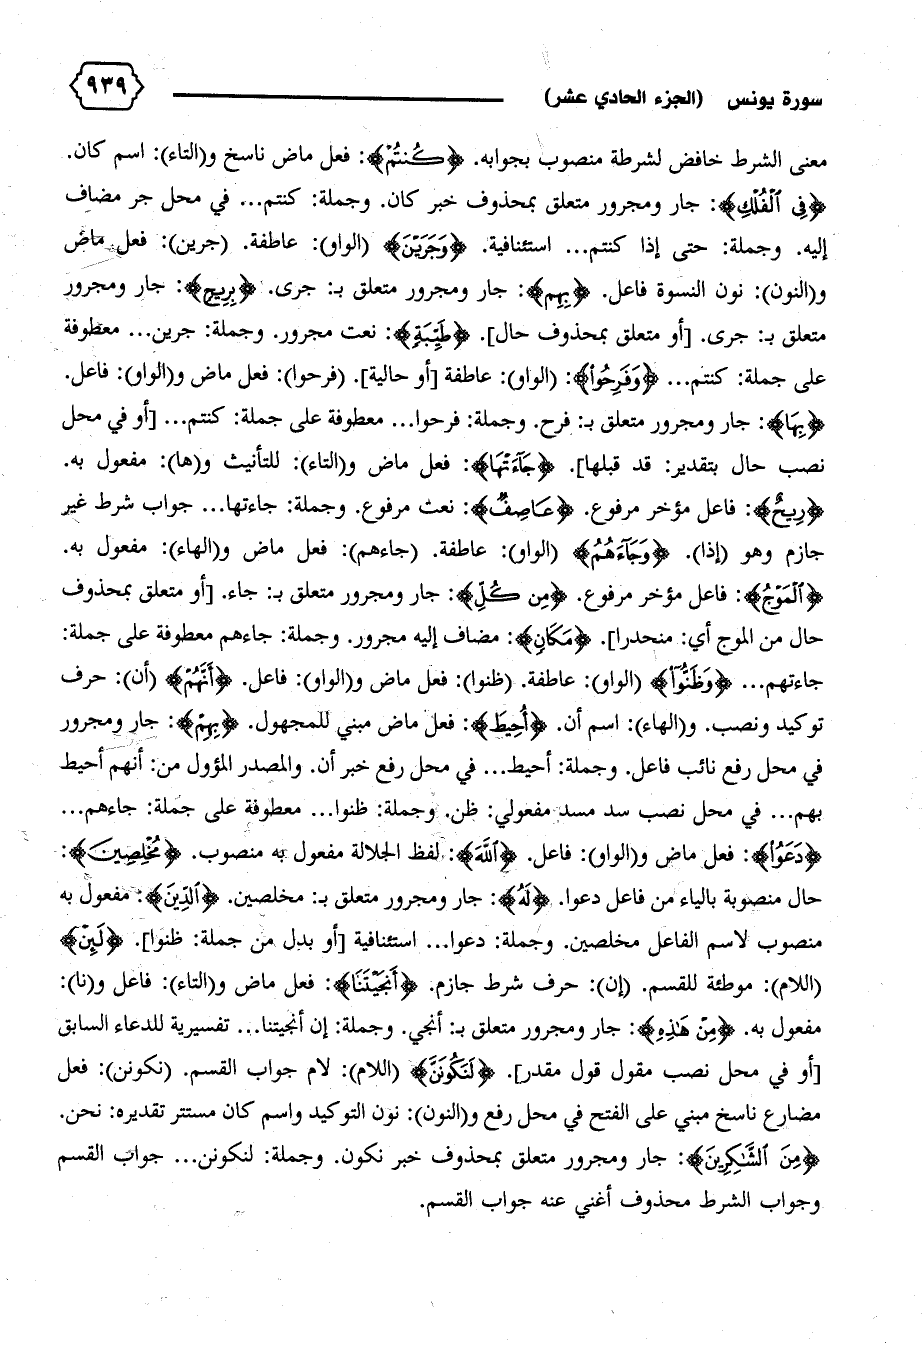 سورة يونس (الجزء الحادي عشر)
٩٣٩
معنى الشرط خافض لشرطة منصوب بجوابه. ﴿كُنتُمْ﴾: فعل ماض ناسخ و(التاء): اسم كان.
﴿فِي ٱلْفُلْكِ﴾: جار ومجرور متعلق بمحذوف خبر كان. وجملة: كنتم... في محل جر مضاف
إليه. وجملة: حتى إذا كنتم... استئنافية. ﴿وَجَرَيْنَ﴾ (الواو): عاطفة. (جرين): فعل ماض
و(النون): نون النسوة فاعل. ﴿بِهِم﴾: جار ومجرور متعلق بـ: جرى. ﴿بِرِيحٍ﴾: جار ومجرور
متعلق بـ: جرى. [أو متعلق بمحذوف حال]. ﴿طَيِّبَةٍ﴾: نعت مجرور. وجملة: جرين... معطوفة
على جملة: كنتم... ﴿وَفَرِحُواْ﴾: (الواو): عاطفة [أو حالية]. (فرحوا): فعل ماض و(الواو): فاعل.
﴿بِهَا﴾: جار ومجرور متعلق بـ: فرح. وجملة: فرحوا... معطوفة على جملة: كنتم... [أو في محل
نصب حال بتقدير: قد قبلها]. ﴿جَآءَتْهَا﴾: فعل ماض و(التاء): للتأنيث و(ها): مفعول به.
﴿رِيحٌ﴾: فاعل مؤخر مرفوع. ﴿عَاصِفٌ﴾: نعت مرفوع. وجملة: جاءتها... جواب شرط غير
جازم وهو (إذا). ﴿وَجَآءَهُمُ﴾ (الواو): عاطفة. (جاءهم): فعل ماض و(الهاء): مفعول به.
﴿ٱلْمَوْجُ﴾: فاعل مؤخر مرفوع. ﴿مِن كُلِّ﴾: جار ومجرور متعلق بـ: جاء. [أو متعلق بمحذوف
حال من الموج أي: منحدرا]. ﴿مَكَانٍ﴾: مضاف إليه مجرور. وجملة: جاءهم معطوفة على جملة:
جاءتهم... ﴿وَظَنُّوٓاْ﴾ (الواو): عاطفة. (ظنوا): فعل ماض و(الواو): فاعل. ﴿أَنَّهُمْ﴾ (أن): حرف
توكيد ونصب. و(الهاء): اسم أن. ﴿أُحِيطَ﴾: فعل ماض مبني للمجهول. ﴿بِهِمْ﴾: جار ومجرور
في محل رفع نائب فاعل. وجملة: أحيط... في محل رفع خبر أن. والمصدر المؤول من: أنهم أحيط
بهم... في محل نصب سد مسد مفعولي: ظن. وجملة: ظنوا... معطوفة على جملة: جاءهم...
﴿دَعَوُاْ﴾: فعل ماض و(الواو): فاعل. ﴿ٱللَّهَ﴾: لفظ الجلالة مفعول به منصوب. ﴿مُخْلِصِينَ﴾:
حال منصوبة بالياء من فاعل دعوا. ﴿لَهُ﴾: جار ومجرور متعلق بـ: مخلصين. ﴿ٱلدِّينَ﴾: مفعول به
منصوب لاسم الفاعل مخلصين. وجملة: دعوا... استئنافية [أو بدل من جملة: ظنوا]. ﴿لَئِنْ﴾
(اللام): موطئة للقسم. (إن): حرف شرط جازم. ﴿أَنجَيْتَنَا﴾: فعل ماض و(التاء): فاعل و(نا):
مفعول به. ﴿مِنْ هَٰذِهِ﴾: جار ومجرور متعلق بـ: أنجي. وجملة: إن أنجيتنا... تفسيرية للدعاء السابق
[أو في محل نصب مقول قول مقدر]. ﴿لَنَكُونَنَّ﴾ (اللام): لام جواب القسم. (نكونن): فعل
مضارع ناسخ مبني على الفتح في محل رفع و(النون): نون التوكيد واسم كان مستتر تقديره: نحن.
﴿مِنَ ٱلشَّٰكِرِينَ﴾: جار ومجرور متعلق بمحذوف خبر نكون. وجملة: لنكونن... جواب القسم
وجواب الشرط محذوف أغني عنه جواب القسم.